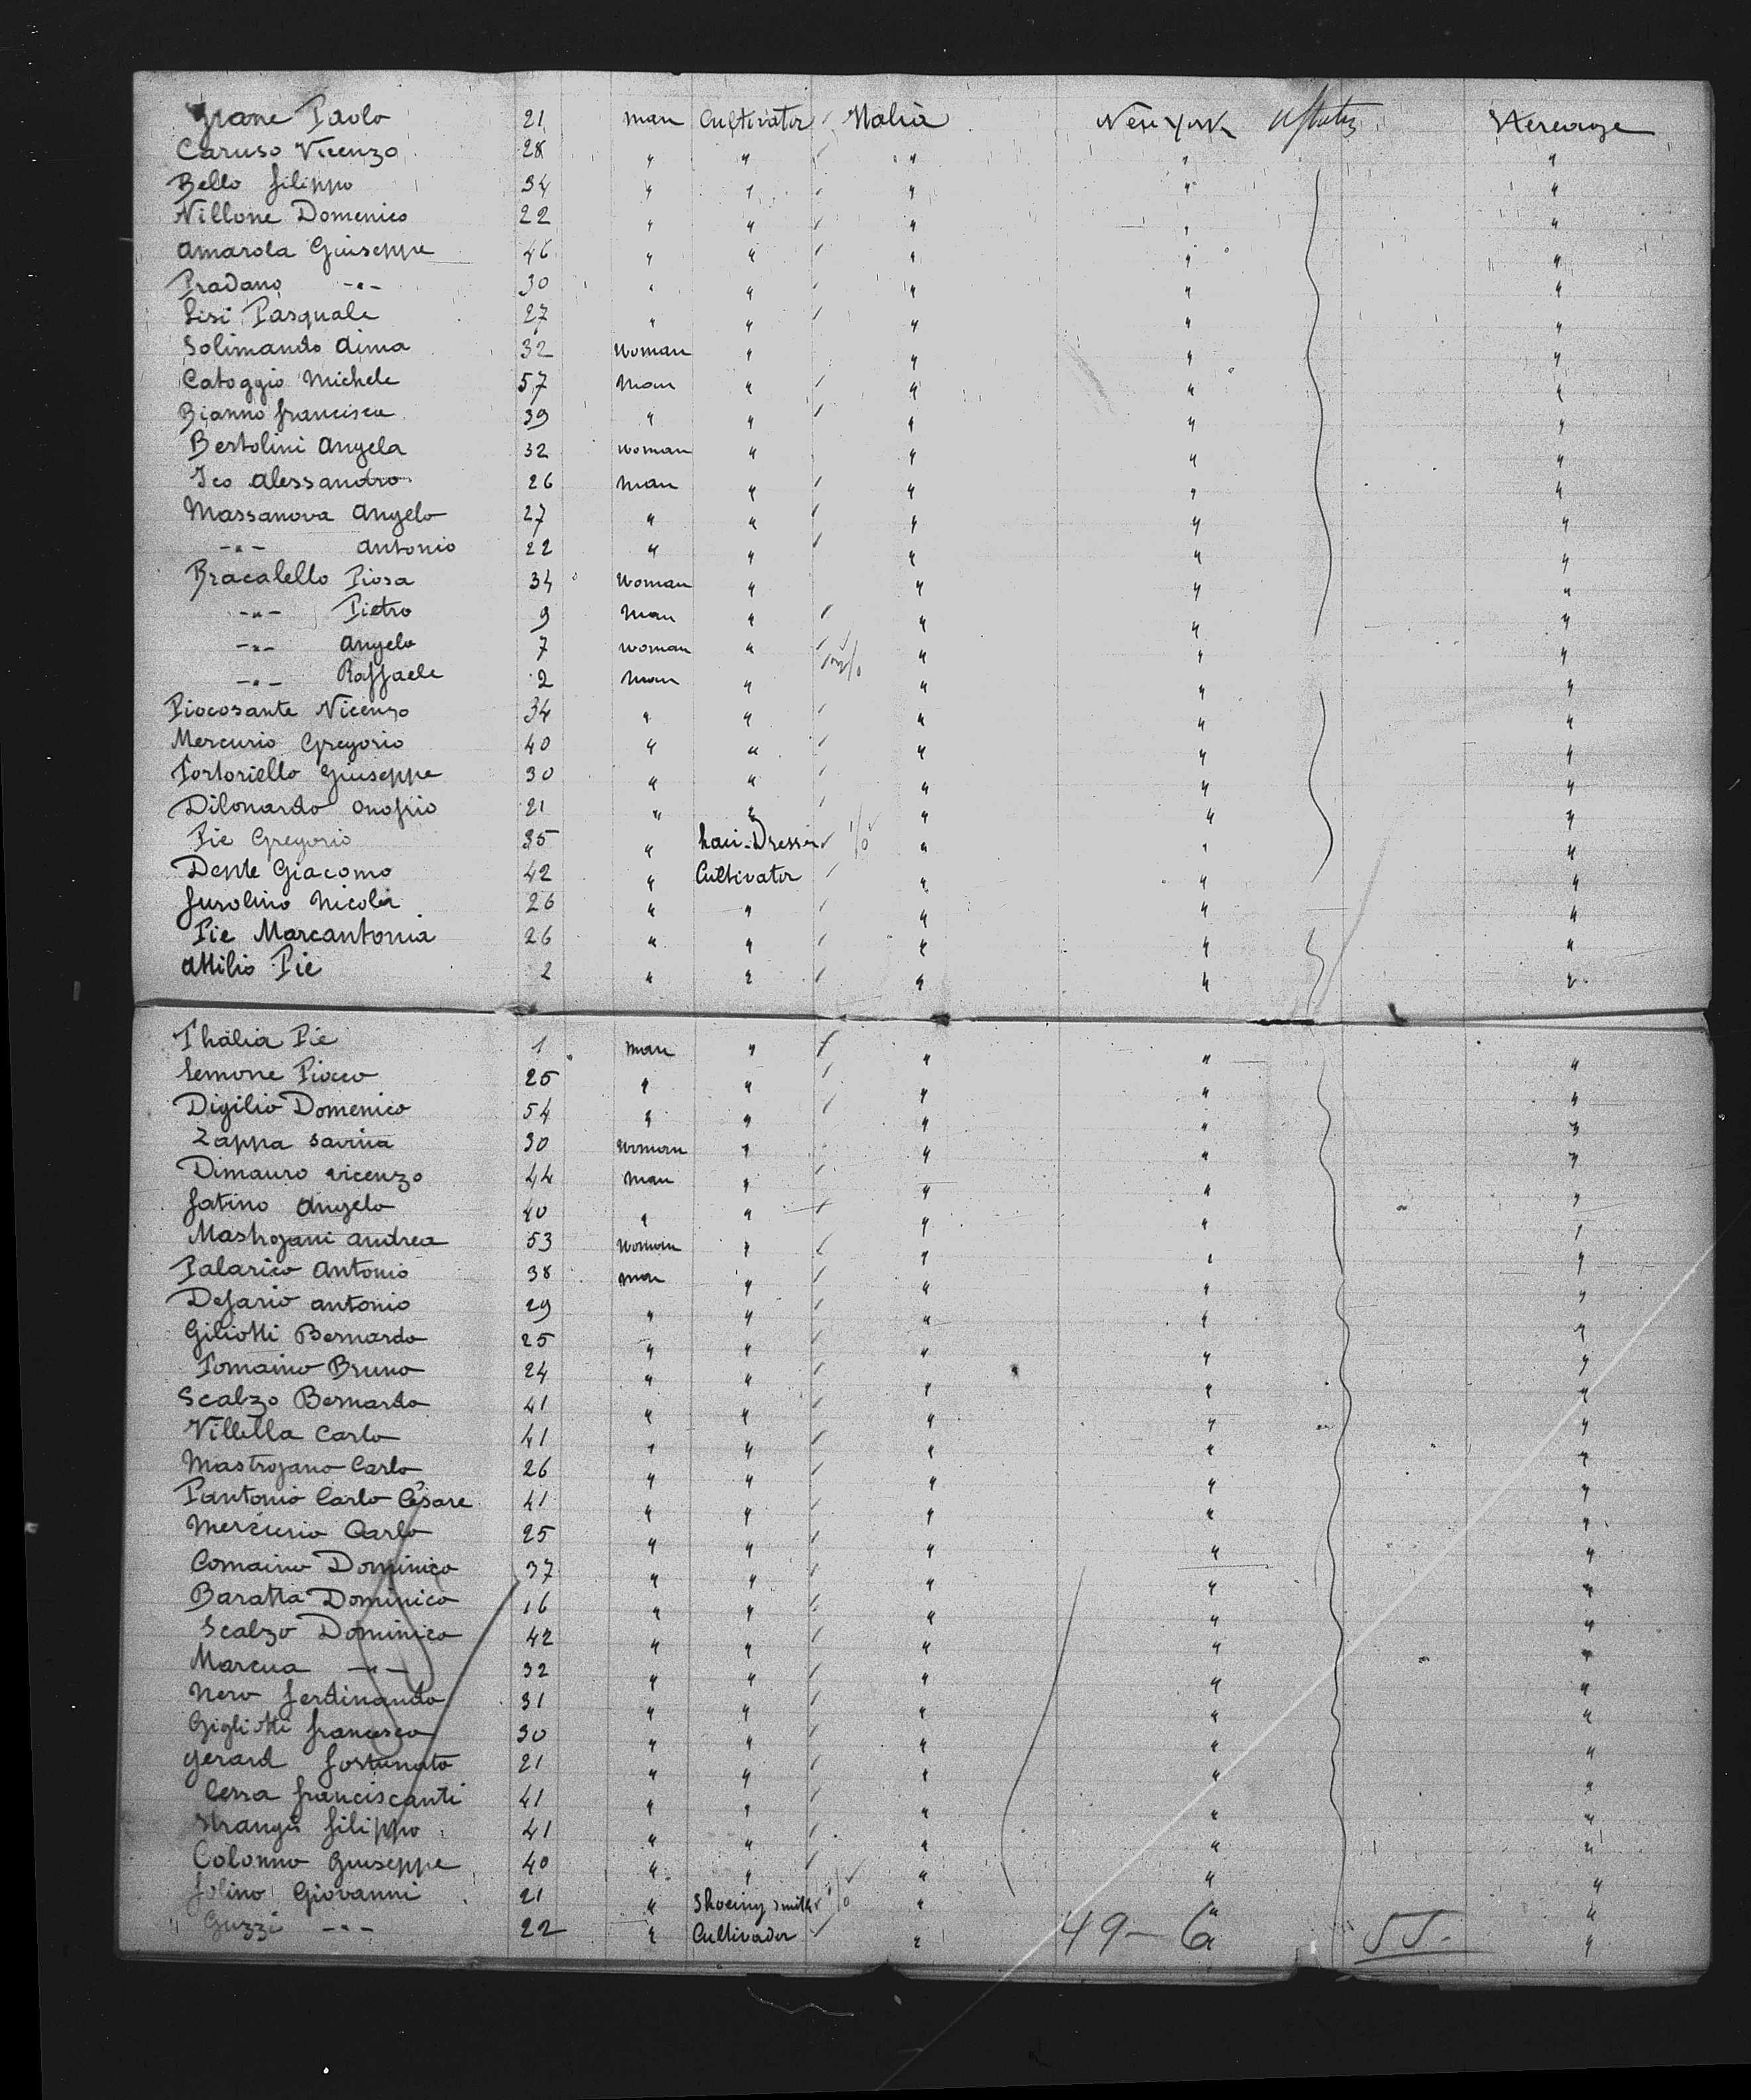 Grane Paolo 21 man Cultivator Italia New York Ustates Stereage
Caruso Vicenzo 28 " " " " "
Bello filippo 34 " " " " "
Nillone Domenico 22 " " " " "
Amarola Giuseppe 46 " " " " "
Pradano -"- 30 " " " " "
Lisi Pasquale 27 " " " " "
Solimando Aima 32 Woman " " " "
Catoggio Michele 57 Man " " " "
Bianno francisca 39 " " " " "
Bertolini Angela 32 woman " " " "
Ico Alessandro 26 Man " " " "
Massanova Angelo 27 " " " " "
-"- Antonio 22 " " " " "
Bracalello Piosa 34 Woman " " " "
-"- Pietro 9 Man " " " "
-"- Angelo 7 woman " " " "
-"- Raffaele 2 Man " " " "
Piocosante Nicenzo 34 " " " " "
Mercurio Gregorio 40 " " " " "
Tortoriello Giuseppe 30 " " " " "
Dilonardo Onofrio 21 " " " " "
Pie Gregorio 35 " hair-Dresser " " "
Dente Giacomo 42 " Cultivator " " "
furolino Nicola 26 " " " " "
Pie Marcantonia 26 " " " " "
Attilio Pie 2 " " " " "
Thalia Pie 1 man " " " "
Lemone Piocco 25 " " " " "
Digilio Domenico 54 " " " " "
Zappa Savina 30 Woman " " " "
Dimauro vicenzo 44 Man " " " "
fatino Angelo 40 " " " " "
Mastrojani Andrea 53 Woman " " " "
Palarico Antonio 38 man " " " "
Defario antonio 29 " " " " "
Giliotti Bernardo 25 " " " " "
Tomaino Bruno 24 " " " " "
Scalzo Bernardo 41 " " " " "
Villella Carlo 41 " " " " "
Mastrojano Carlo 26 " " " " "
Pantonio Carlo Cesare 41 " " " " "
Mercurio Carlo 25 " " " " "
Comaino Dominico 37 " " " " "
Baratta Dominico 16 " " " " "
Scalzo Dominico 42 " " " " "
Marcua -"- 32 " " " " "
Nero ferdinando 31 " " " " "
Gigliotti francesco 30 " " " " "
Gerard fortunato 21 " " " " "
Cerra franciscanti 41 " " " " "
Strangis filippo 41 " " " " "
Colonno Giuseppe 40 " " " " "
folino Giovanni 21 " Shoeing smith " " "
Guzzi -"- 22 " Cultivador " " "
49-6 55-